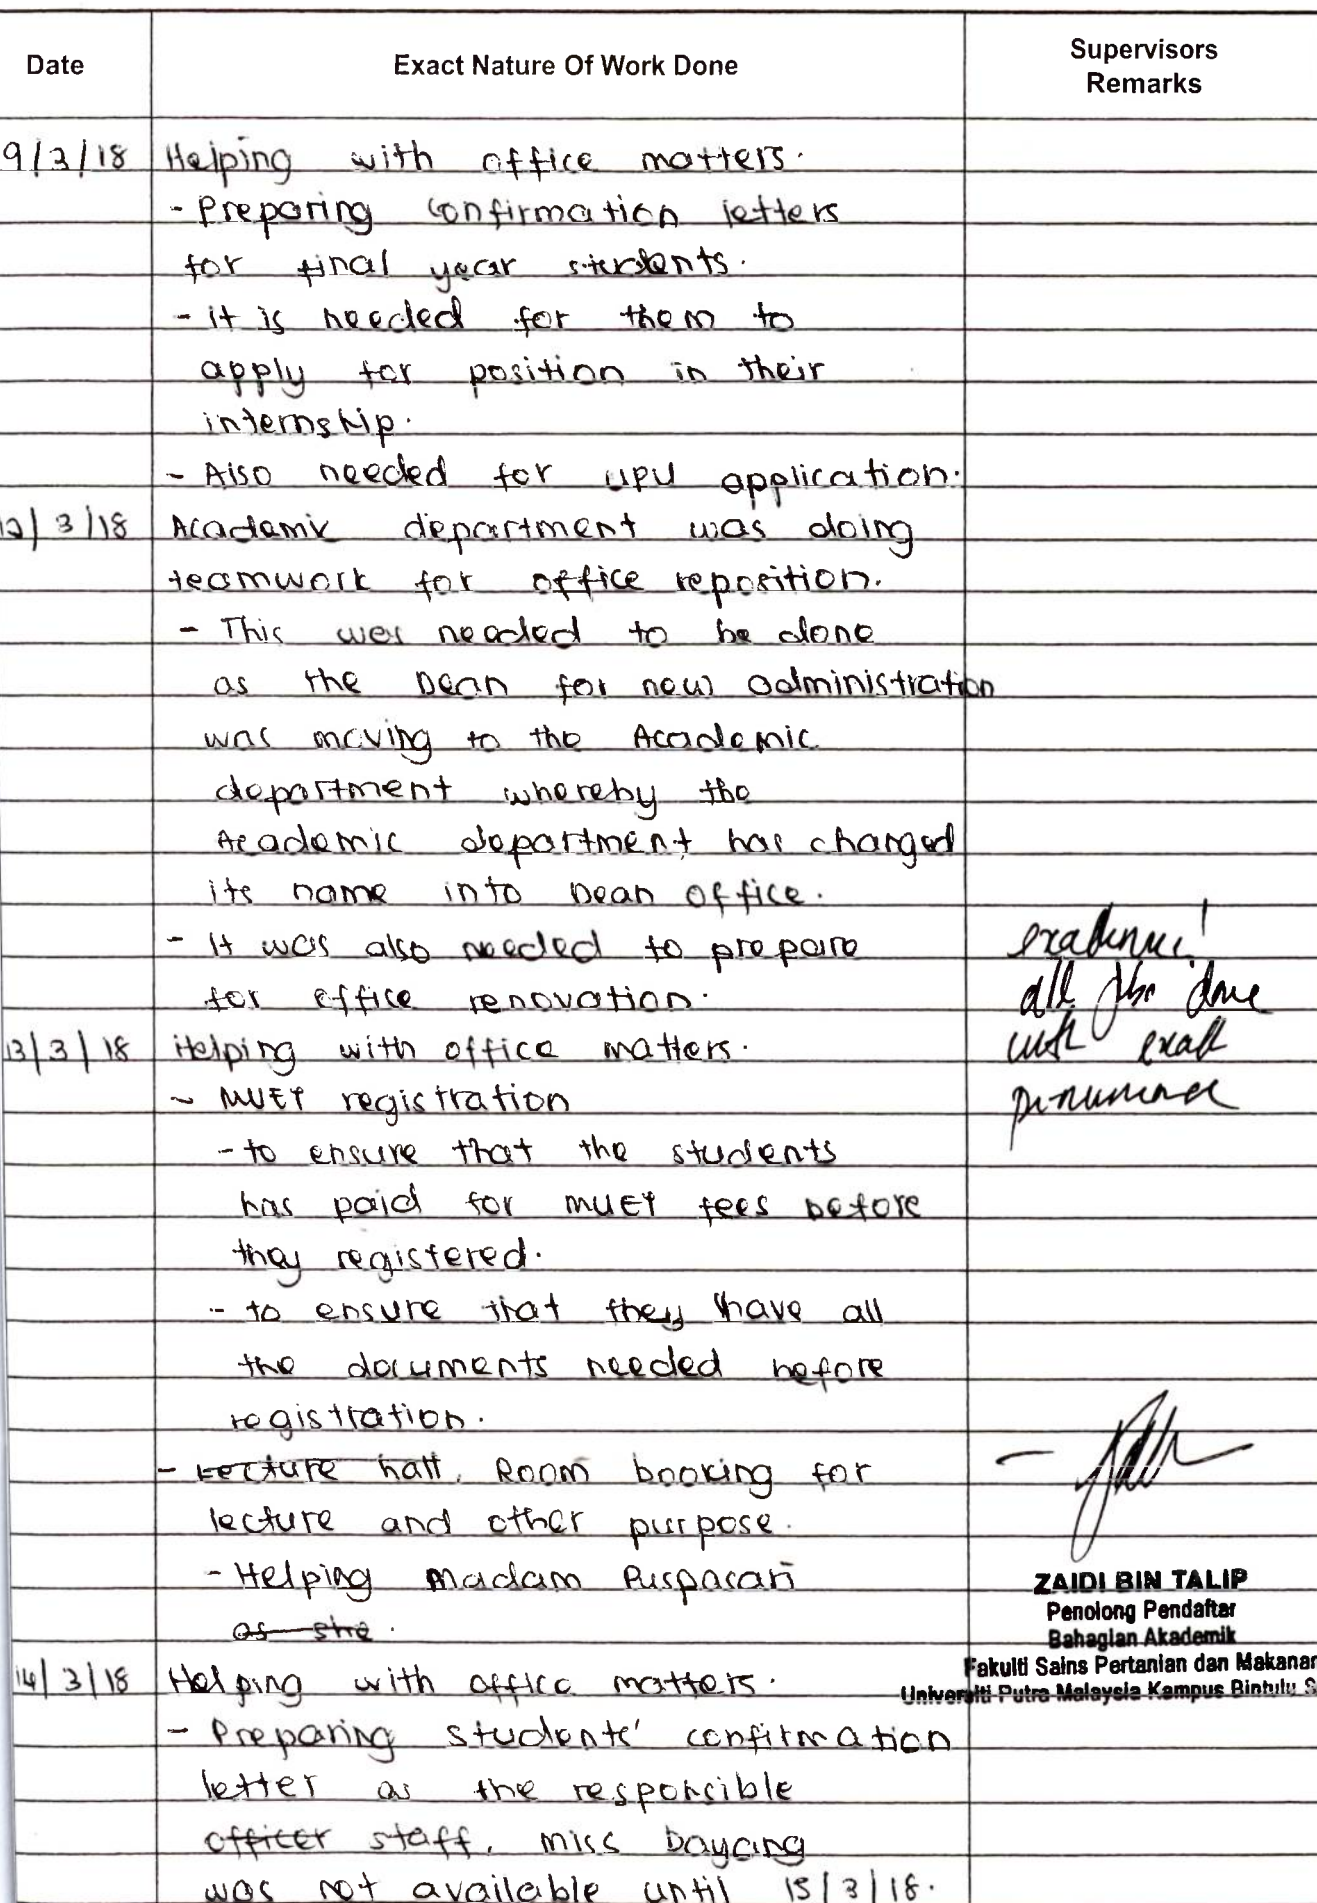 Date Exact Nature Of Work Done Supervisors Remarks
9/3/18 Helping with office matters.
- Preparing confirmation letters
for final year students.
- it is needed for them to
apply for position in their
internship.
- Also needed for UPU application.
12/3/18 Academic department was doing
teamwork for office reposition.
- This was needed to be done
as the Dean for new administration
was moving to the Academic
department whereby the
Academic department has changed
its name into Dean office.
- It was also needed to prepare
for office renovation.
all done
with
13/3/18 Helping with office matters.
- MUET registration
- to ensure that the students
has paid for MUET fees before
they registered.
- to ensure that they have all
the documents needed before
registration.
- Lecture hall. Room booking for
lecture and other purpose.
- Helping Madam Puspasari
as she.
ZAIDI BIN TALIP
Penolong Pendaftar
Bahagian Akademik
Fakulti Sains Pertanian dan Makanan
Universiti Putra Malaysia Kampus Bintulu S
14/3/18 Helping with office matters.
- Preparing students' confirmation
letter as the responsible
officer staff, miss Dayang
was not available until 15/3/18.